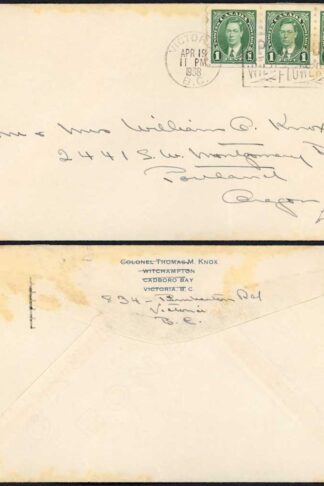 CANADA CANADA
1 1 1 1 1
VICTORIA
APR 19
11 PM
1938
B.C.
FLOWER
Mrs William O. Knox
2441 S.W. Montgomery
Portland
Oregon
COLONEL THOMAS M. KNOX
WITCHAMPTON
CADBORO BAY
VICTORIA, B.C.
834 - Pemberton Rd
Victoria
B.C.